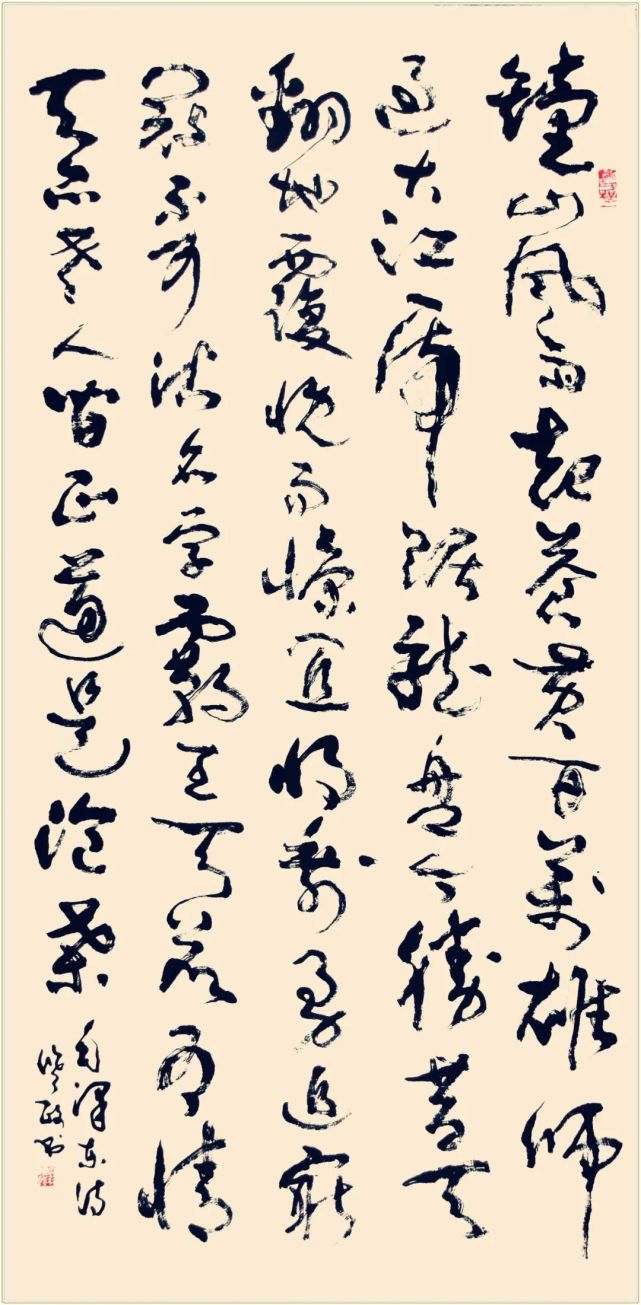 鐘山風雨起蒼黄百萬雄師
過大江虎踞龍盘今勝昔天
翻地覆慨而慷宜將剩勇追窮
寇不可沽名学霸王天若有情
天亦老人间正道是滄桑
毛澤東詩
政书